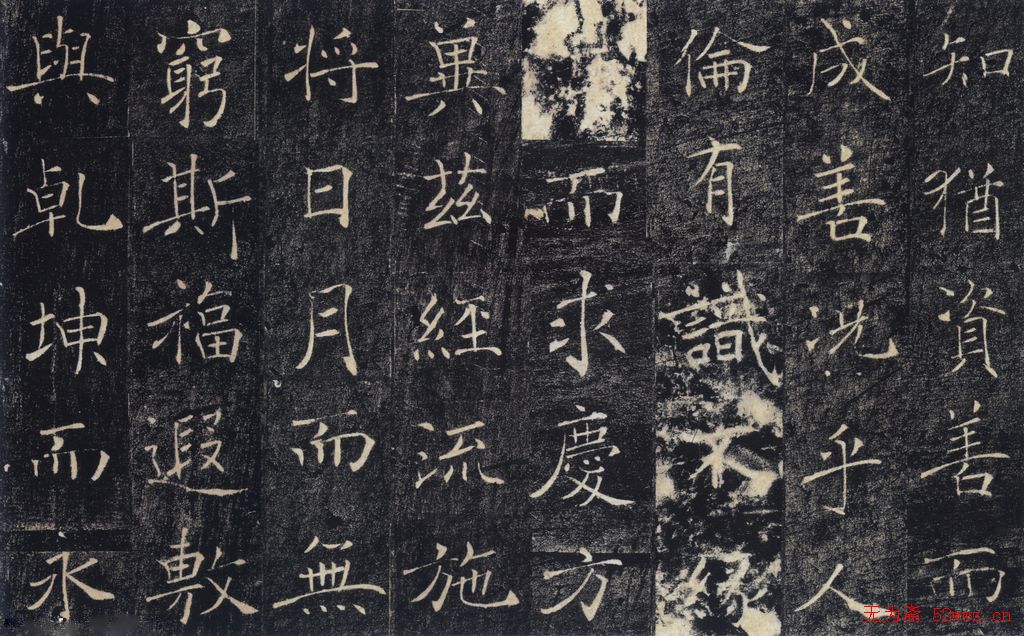 知猶資善而
成善況乎人
倫有識不緣
而求慶方
冀茲經流施
将日月而無
窮斯福遐敷
與乹坤而永
无为斋.52wwz.cn